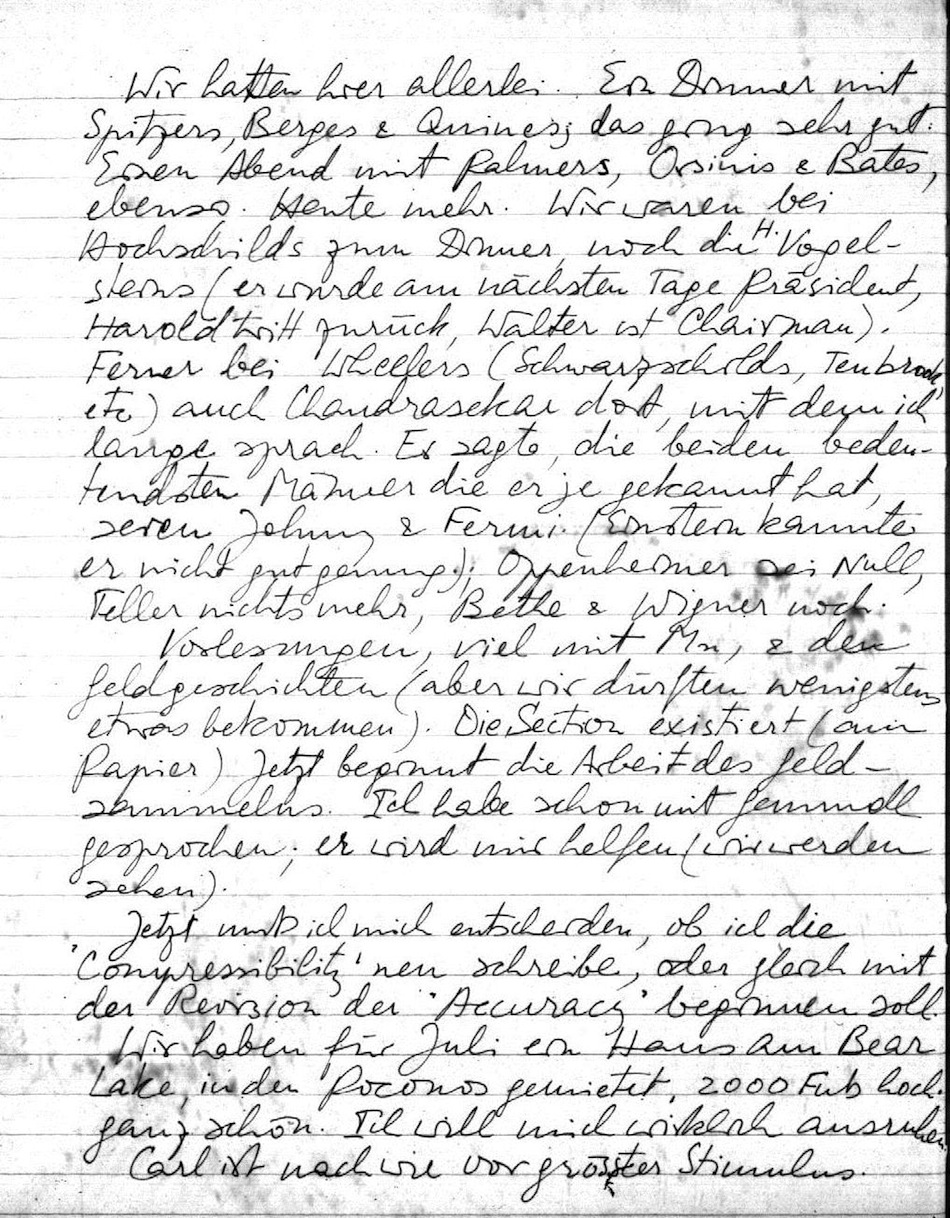 Wir hatten hier allerlei. Ein Dinner mit
Spitzers, Berges & Quines; das ging sehr gut.
Einen Abend mit Palmers, Orsinis & Bates,
ebenso. Heute mehr. Wir waren bei
Hochschilds zum Dinner, noch die H. Vogel-
steins (er wurde am nächsten Tage Präsident,
Harold tritt zurück, Walter ist Chairman).
Ferner bei Wheelers (Schwarzschilds, Tenbroek,
etc) auch Chandrasekar dort, mit dem ich
lange sprach. Er sagte, die beiden bedeu-
tendsten Männer die er je gekannt hat,
seien Johnny & Fermi. (Einstein kannte
er nicht gut genug); Oppenheimer sei Null,
Teller nichts mehr, Bethe & Wigner noch.
Vorlesungen, viel mit Mn, & den
Geldgeschichten (aber wir dürften wenigstens
etwas bekommen). Die Section existiert (am
Papier) Jetzt beginnt die Arbeit des Geld-
sammelns. Ich habe schon mit Gemmill
gesprochen; er wird mir helfen (wir werden
sehen).
Jetzt muß ich mich entscheiden, ob ich die
'Compressibility' neu schreibe, oder gleich mit
der Revision der 'Accuracy' beginnen soll.
Wir haben für Juli ein Haus am Bear
Lake, in den Poconos gemietet, 2000 Fuß hoch.
ganz schön. Ich will mich wirklich ausruhen.
Carl ist nach wie vor grösster Stimulus.